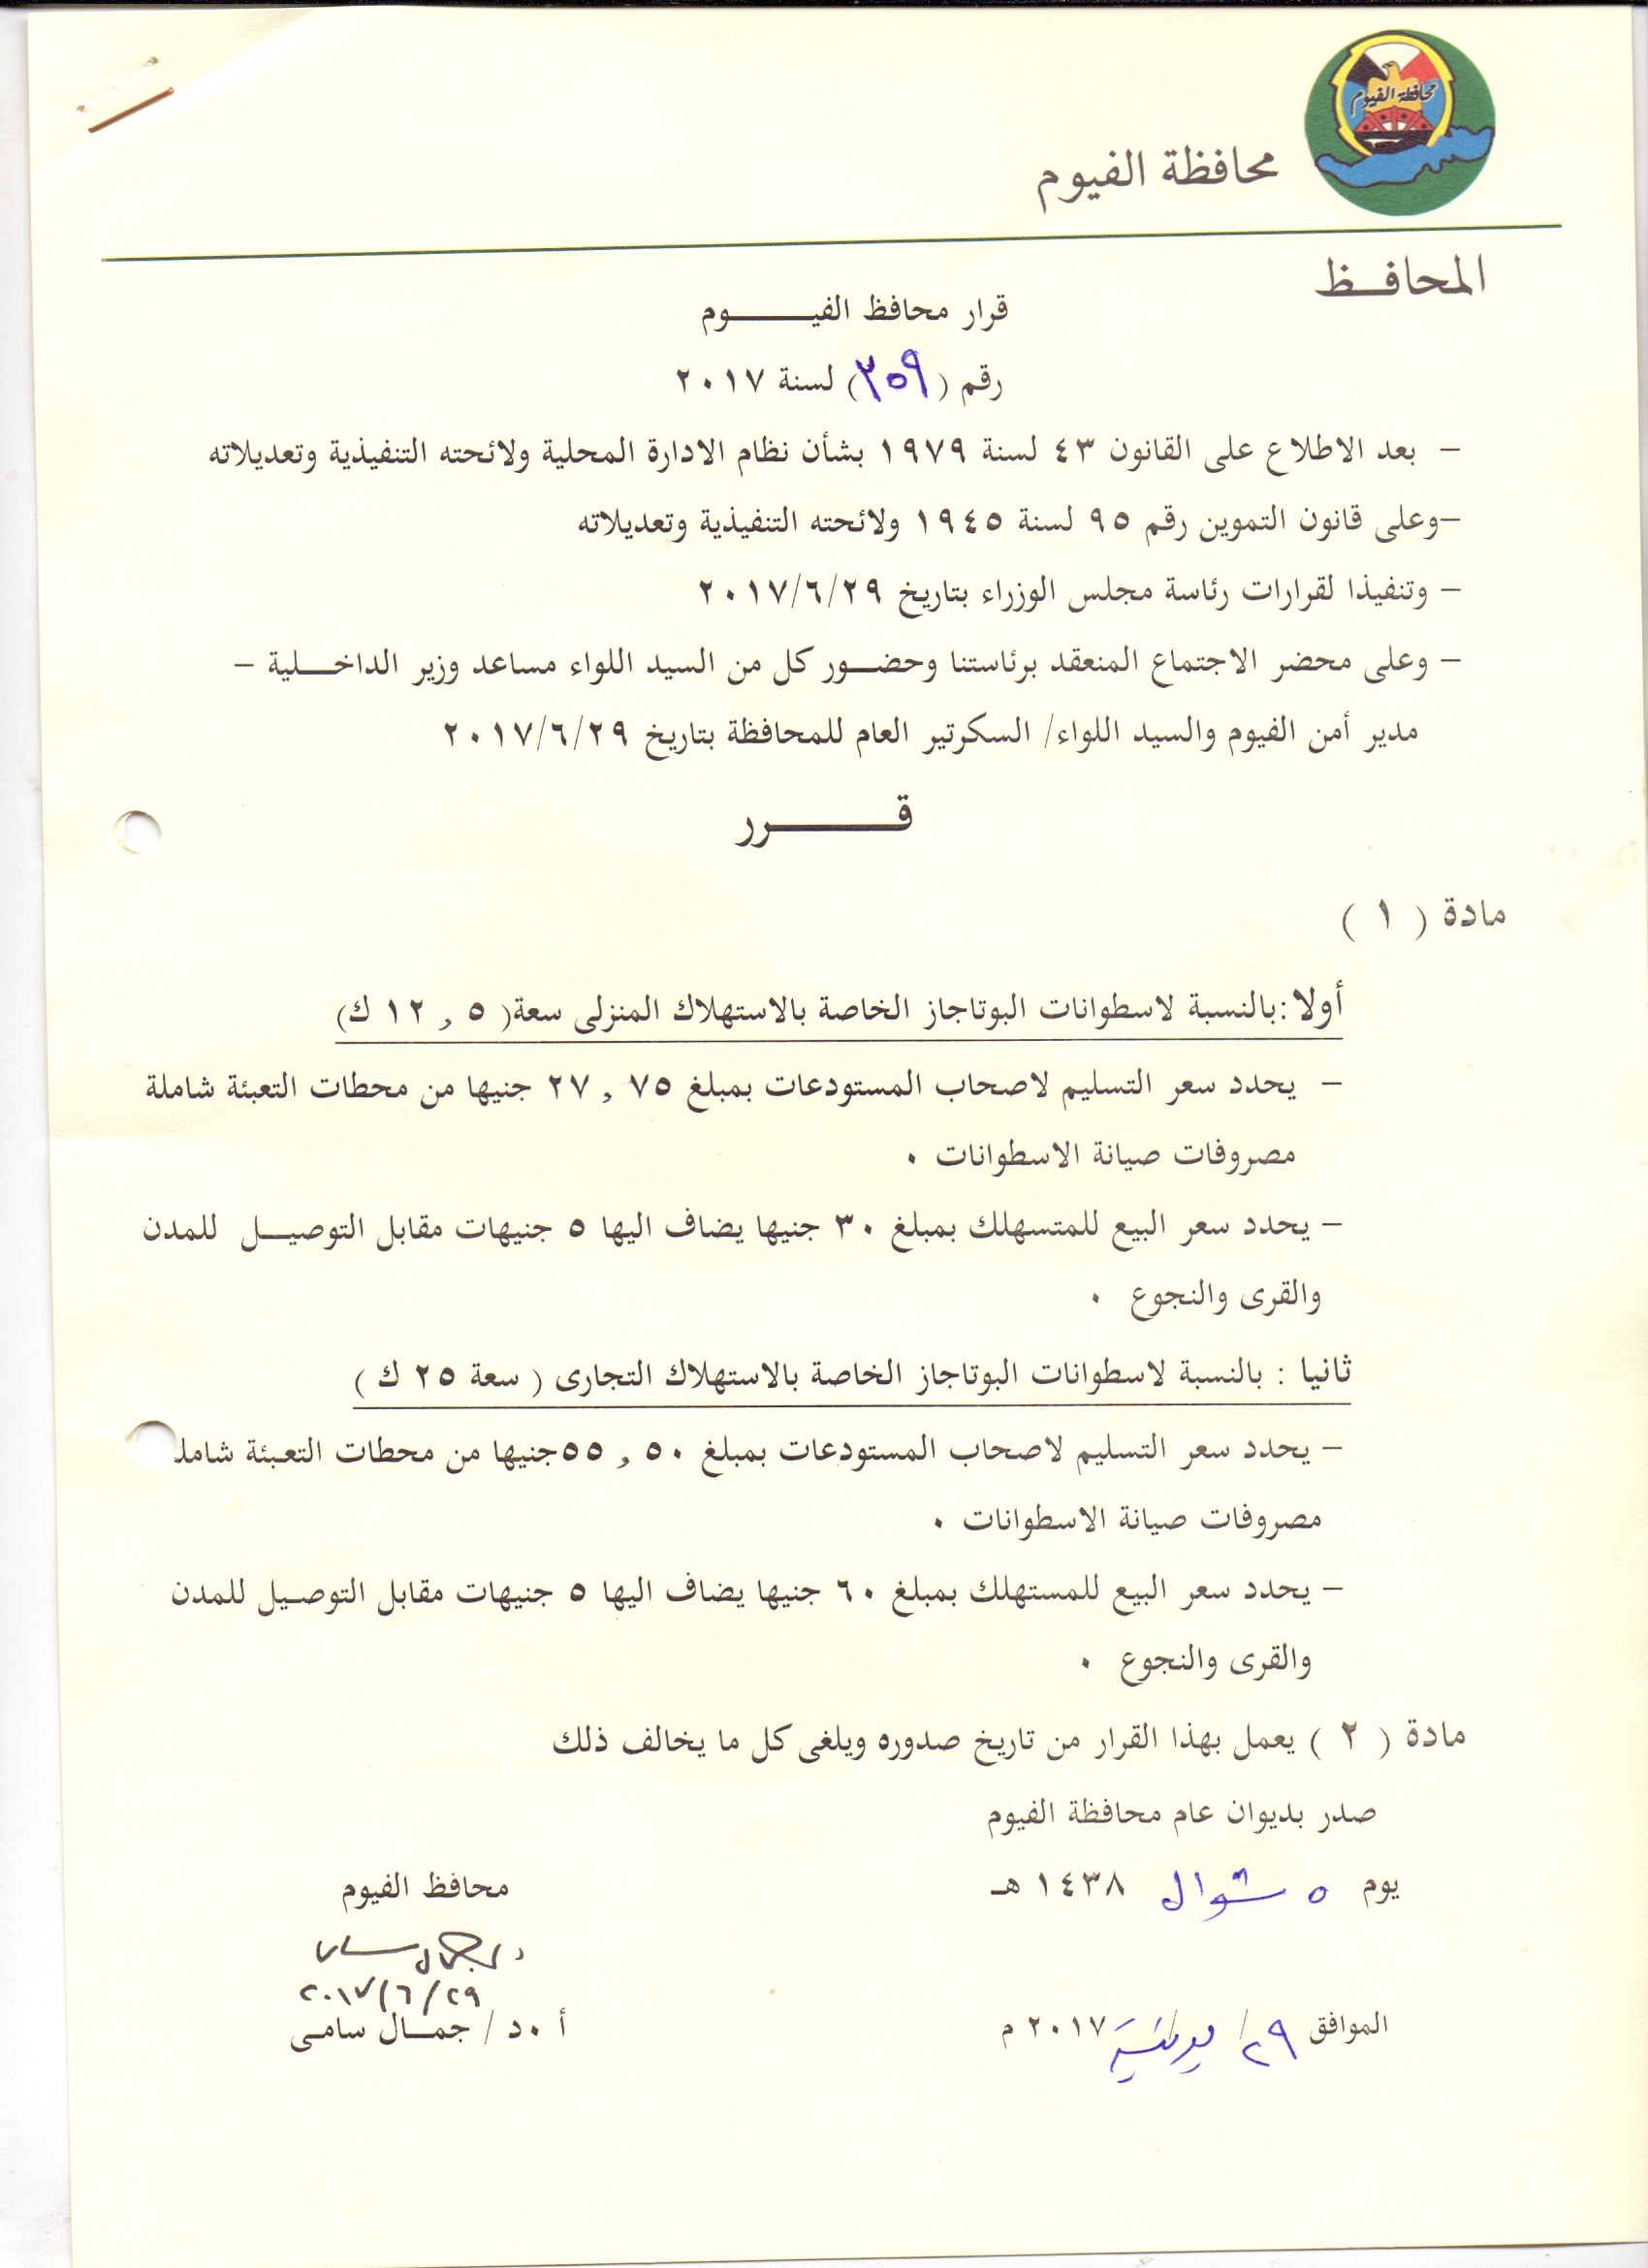 محافظة الفيوم
محافظة الفيوم
المحافـــظ
قرار محافظ الفيــــــــوم
رقم (٣٥٩) لسنة ٢٠١٧
– بعد الاطلاع على القانون ٤٣ لسنة ١٩٧٩ بشأن نظام الادارة المحلية ولائحته التنفيذية وتعديلاته
–وعلى قانون التموين رقم ٩٥ لسنة ١٩٤٥ ولائحته التنفيذية وتعديلاته
– وتنفيذا لقرارات رئاسة مجلس الوزراء بتاريخ ٢٠١٧/٦/٢٩
– وعلى محضر الاجتماع المنعقد برئاستنا وحضـــور كل من السيد اللواء مساعد وزير الداخـــلية –
مدير أمن الفيوم والسيد اللواء/ السكرتير العام للمحافظة بتاريخ ٢٠١٧/٦/٢٩
قـــــــــرر
مادة ( ١ )
أولا :بالنسبة لاسطوانات البوتاجاز الخاصة بالاستهلاك المنزلى سعة( ٥ , ١٢ ك)
– يحدد سعر التسليم لاصحاب المستودعات بمبلغ ٧٥ , ٢٧ جنيها من محطات التعبئة شاملة
مصروفات صيانة الاسطوانات ٠
– يحدد سعر البيع للمتسهلك بمبلغ ٣٠ جنيها يضاف اليها ٥ جنيهات مقابل التوصيـــل للمدن
والقرى والنجوع ٠
ثانيا : بالنسبة لاسطوانات البوتاجاز الخاصة بالاستهلاك التجارى ( سعة ٢٥ ك )
– يحدد سعر التسليم لاصحاب المستودعات بمبلغ ٥٠ , ٥٥جنيها من محطات التعبئة شامل
مصروفات صيانة الاسطوانات ٠
– يحدد سعر البيع للمستهلك بمبلغ ٦٠ جنيها يضاف اليها ٥ جنيهات مقابل التوصيل للمدن
والقرى والنجوع ٠
مادة ( ٢ ) يعمل بهذا القرار من تاريخ صدوره ويلغى كل ما يخالف ذلك
صدر بديوان عام محافظة الفيوم
يوم ٥ شوال ١٤٣٨ هـ
محافظ الفيوم
٢٠١٧/٦/٢٩
الموافق ٢٩/ يونية/ ٢٠١٧ م
أ ٠د / جمـــال سامى